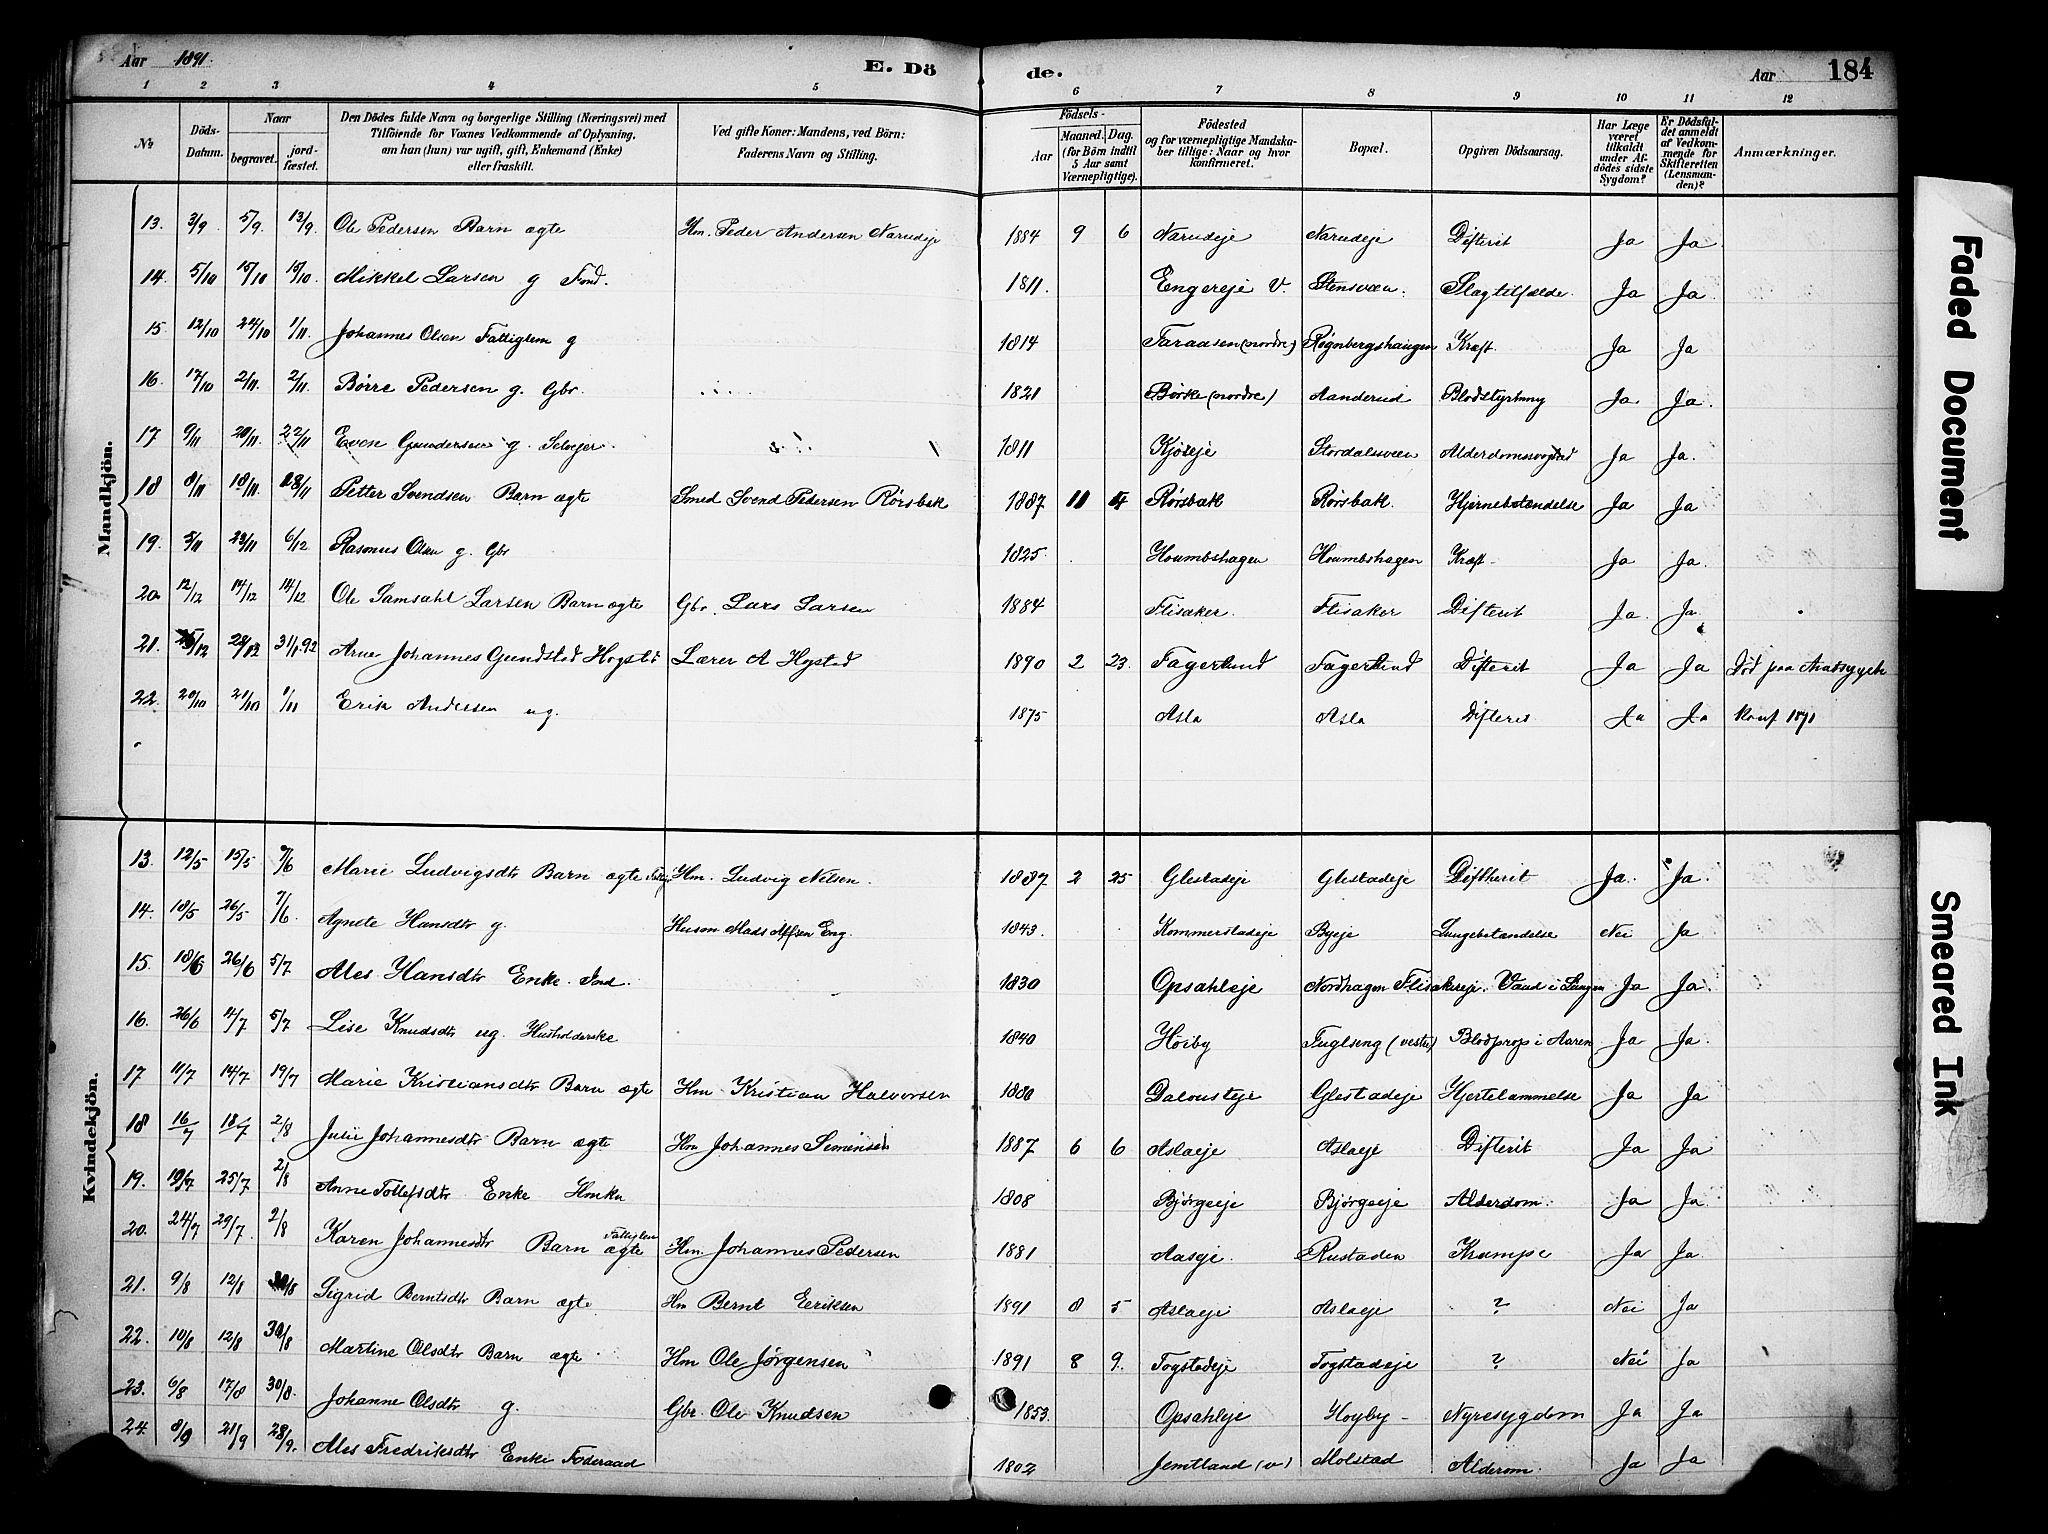 Aar 1891. E. Dö de. Aar 184
1 2 3 4 5 6 7 8 9 10 11 12
No Döds-Datum. Naar begravet. jordfæstet. Den Dödes fulde Navn og borgerlige Stilling (Næringsvei) med Tilföiende for Voxnes Vedkommende af Oplysning, om han (hun) var ugift, gift, Enkemand (Enke) eller fraskilt. Ved gifte Koner: Mandens, ved Börn: Faderens Navn og Stilling. Födsels- Aar Maaned. Dag. (for Börn indtil 5 Aar samt Værnepligtige). Födested og for værnepligtige Mandskaber tillige: Naar og hvor konfirmeret. Bopæl. Opgiven Dödsaarsag. Har Læge været tilkaldt under Afdödes sidste Sygdom? Er Dödsfaldet anmeldt af Vedkommende for Skifteretten (Lensmanden)? Anmærkninger.
Mandkjön.
13. 3/9 5/9 13/9 Ole Pedersen Barn ægte Hm. Peder Andersen Narudeje 1884 9 6 Narudeje Narudeje Difterit Ja Ja
14. 5/10 15/10 15/10 Mikkel Larsen g Fond. 1811. Engereje V. Stensveen. Slagtilfælde. Ja Ja
15 12/10 22/10 1/11 Johannes Olsen Fattiglem g 1814 Taraasen (nordre) Røgnbergshaugen Kræft. Ja Ja
16. 17/10 2/11 2/11 Børre Pedersen g. Gbr. 1821 Børke (nordre) Aanderud Blodstyrtning Ja Ja.
17 9/11 20/11 22/11 Even Gundersen g. Selvejer. 1811 Kjøseje Stordalsveen Ja Ja.
18 8/11 18/11 28/11 Petter Svendsen Barn ægte Smed Svend Pedersen Rørsbak 1887 11 4 Rørsbak Rørsbak. Hjernebetændelse Ja Ja
19. 5/11 23/11 6/12 Rasmus Olsen g. Gbr 1825. Houmbshagen Houmbshagen Kræft Ja Ja.
20 12/12 14/12 14/12 Ole Samsahl Larsen Barn ægte Gbr. Lars Larsen 1884 Flisaker. Flisaker Difterit Ja. Ja
21. 25/12 28/12 31/1.92 Arne Johannes Gundstad Hogstad Lærer A Hogstad 1890 2 23. Fagerlund Fagerlund Difterit Ja Ja Død paa
22. 20/10 21/10 1/11 Erik Andersen ug. 1875 Asla Asla Difteris Ja Ja Konf 1891
Kvindekjön.
13. 12/5 15/5 7/6 Marie Ludvigsdtr Barn ægte Hm. Ludvig Nilsen. 1887 2 25 Glestadeje Glestadeje Diftherit Ja. Ja.
14. 18/5 26/5 7/6 Agnete Hansdtr g. Husm Mads Eng. 1843. Kommerstadeje Byeje Lungebetændelse Nei Ja
15. 18/6 26/6 5/7 Ales Hansdtr Enke. Ind. 1830 Opsahleje Nordhagen Flisakereje. Vand i Lungen Ja Ja.
16. 26/6 4/7 5/7 Lise Knudsdtr ug. Husholderske 1840 Høiby Fuglseng (vestre) Blodprop i Aaren Ja Ja.
17 11/7 14/7 19/7 Marie Kristiansdtr Barn ægte Hm Kristian Halvorsen 1880 Dalousteje Glestadeje Hjertelammelse Ja Ja
18 16/7 18/7 2/8 Julie Johannesdtr Barn ægte Hm Johannes Simensen 1887 6 6 Aslaeje Aslaeje Difterit Ja Ja
19. 19/7 25/7 2/8 Anne Tollefsdtr Enke Hmke 1808 Bjørgeeje Bjørgeeje Alderdom. Ja Ja.
20. 24/7 29/7. 2/8 Karen Johannesdtr Barn Fattiglem ægte Hm. Johannes Pedersen 1881 Aaseje. Rustaden Krampe Ja Ja.
21. 9/8 12/8 30/8 Sigrid Berntsdtr Barn ægte Hm Bernt Eeriksen 1891 8 5 Aslaeje Aslaeje ? Nei Ja
22. 10/8 12/8 30/8 Martine Olsdtr Barn ægte Hm Ole Jørgensen 1891 8 9. Togstadeje Togstadeje ? Nei Ja
23. 6/8 17/8 30/8. Johanne Olsdtr g. Gbr. Ole Knudsen 1853. Opsahleje Hoyby Nyresygdom Ja Ja
24. 8/9 21/9 28/9. Ales Fredriksdtr Enke Foderaad 1802 Jemtland (v) Molstad Alderom. Ja Ja
Faded Document
Smeared Ink